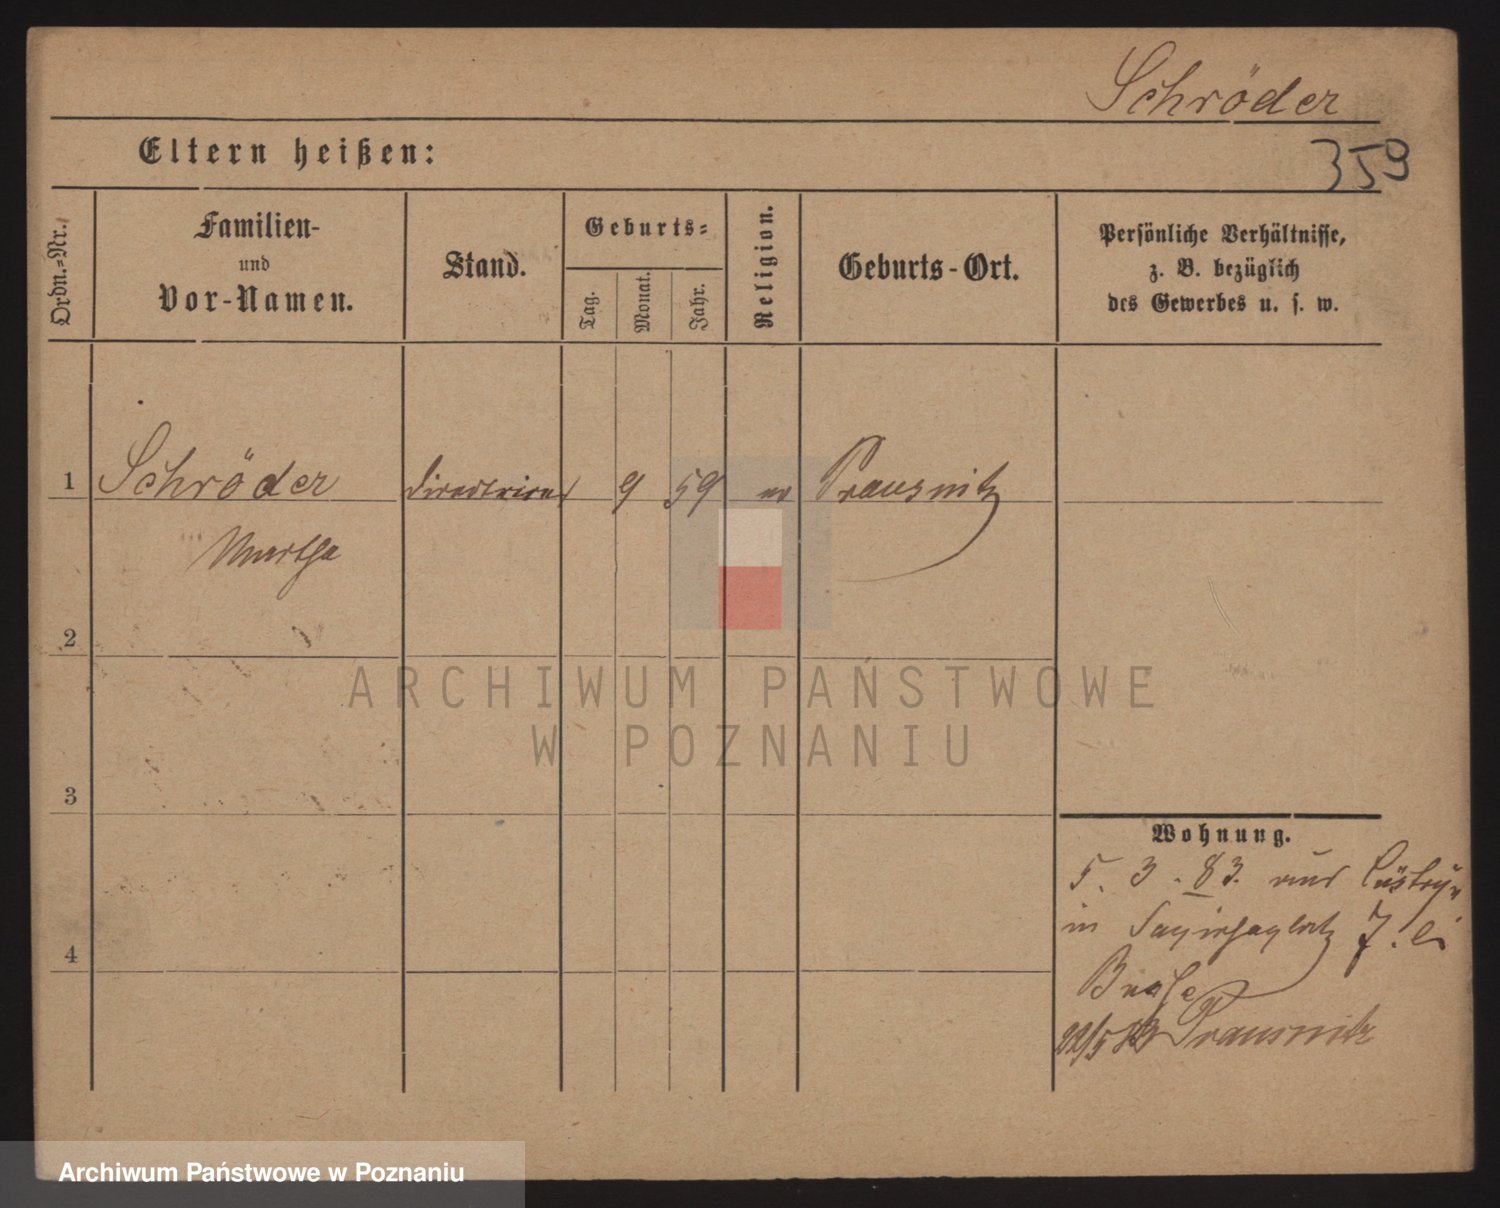 Schröder
359
Eltern heißen:
Ordn.-Nr.
Familien-
und
Vor-Namen.
Stand.
Geburts-
Tag.
Monat.
Jahr.
Religion.
Geburts-Ort.
Persönliche Verhältnisse,
z. B. bezüglich
des Gewerbes u. s. w.
1 Schröder Directrice 9 59 ev Prausnitz
Martha
2
3
4
Wohnung.
5. 3. 83. aus Cüstrin
in Sapiehaplatz 7. bei
22/5 83 Prausnitz
ARCHIWUM PAŃSTWOWE
W POZNANIU
Archiwum Państwowe w Poznaniu